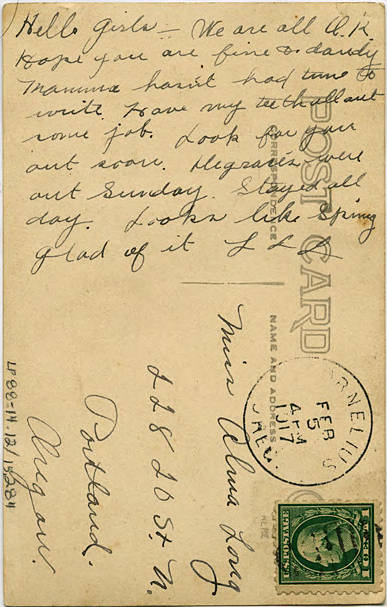 Hello Girls — We are all O.K.
Hope you are fine & dandy
Mamma hasn't had time to
write. Have my teeth all out
some job. Look for you
out soon. were
out Sunday. Stayed all
day. Looks like Spring
glad of it L L L
POST CARD
CORRESPONDENCE
NAME AND ADDRESS
Miss Alma Long
228 20 St. N.
Portland.
Oregon.
CORNELIUS
FEB
5
4 PM
1917
OREG.
U.S. POSTAGE
1 CENT 1
LP88-14.12/15284